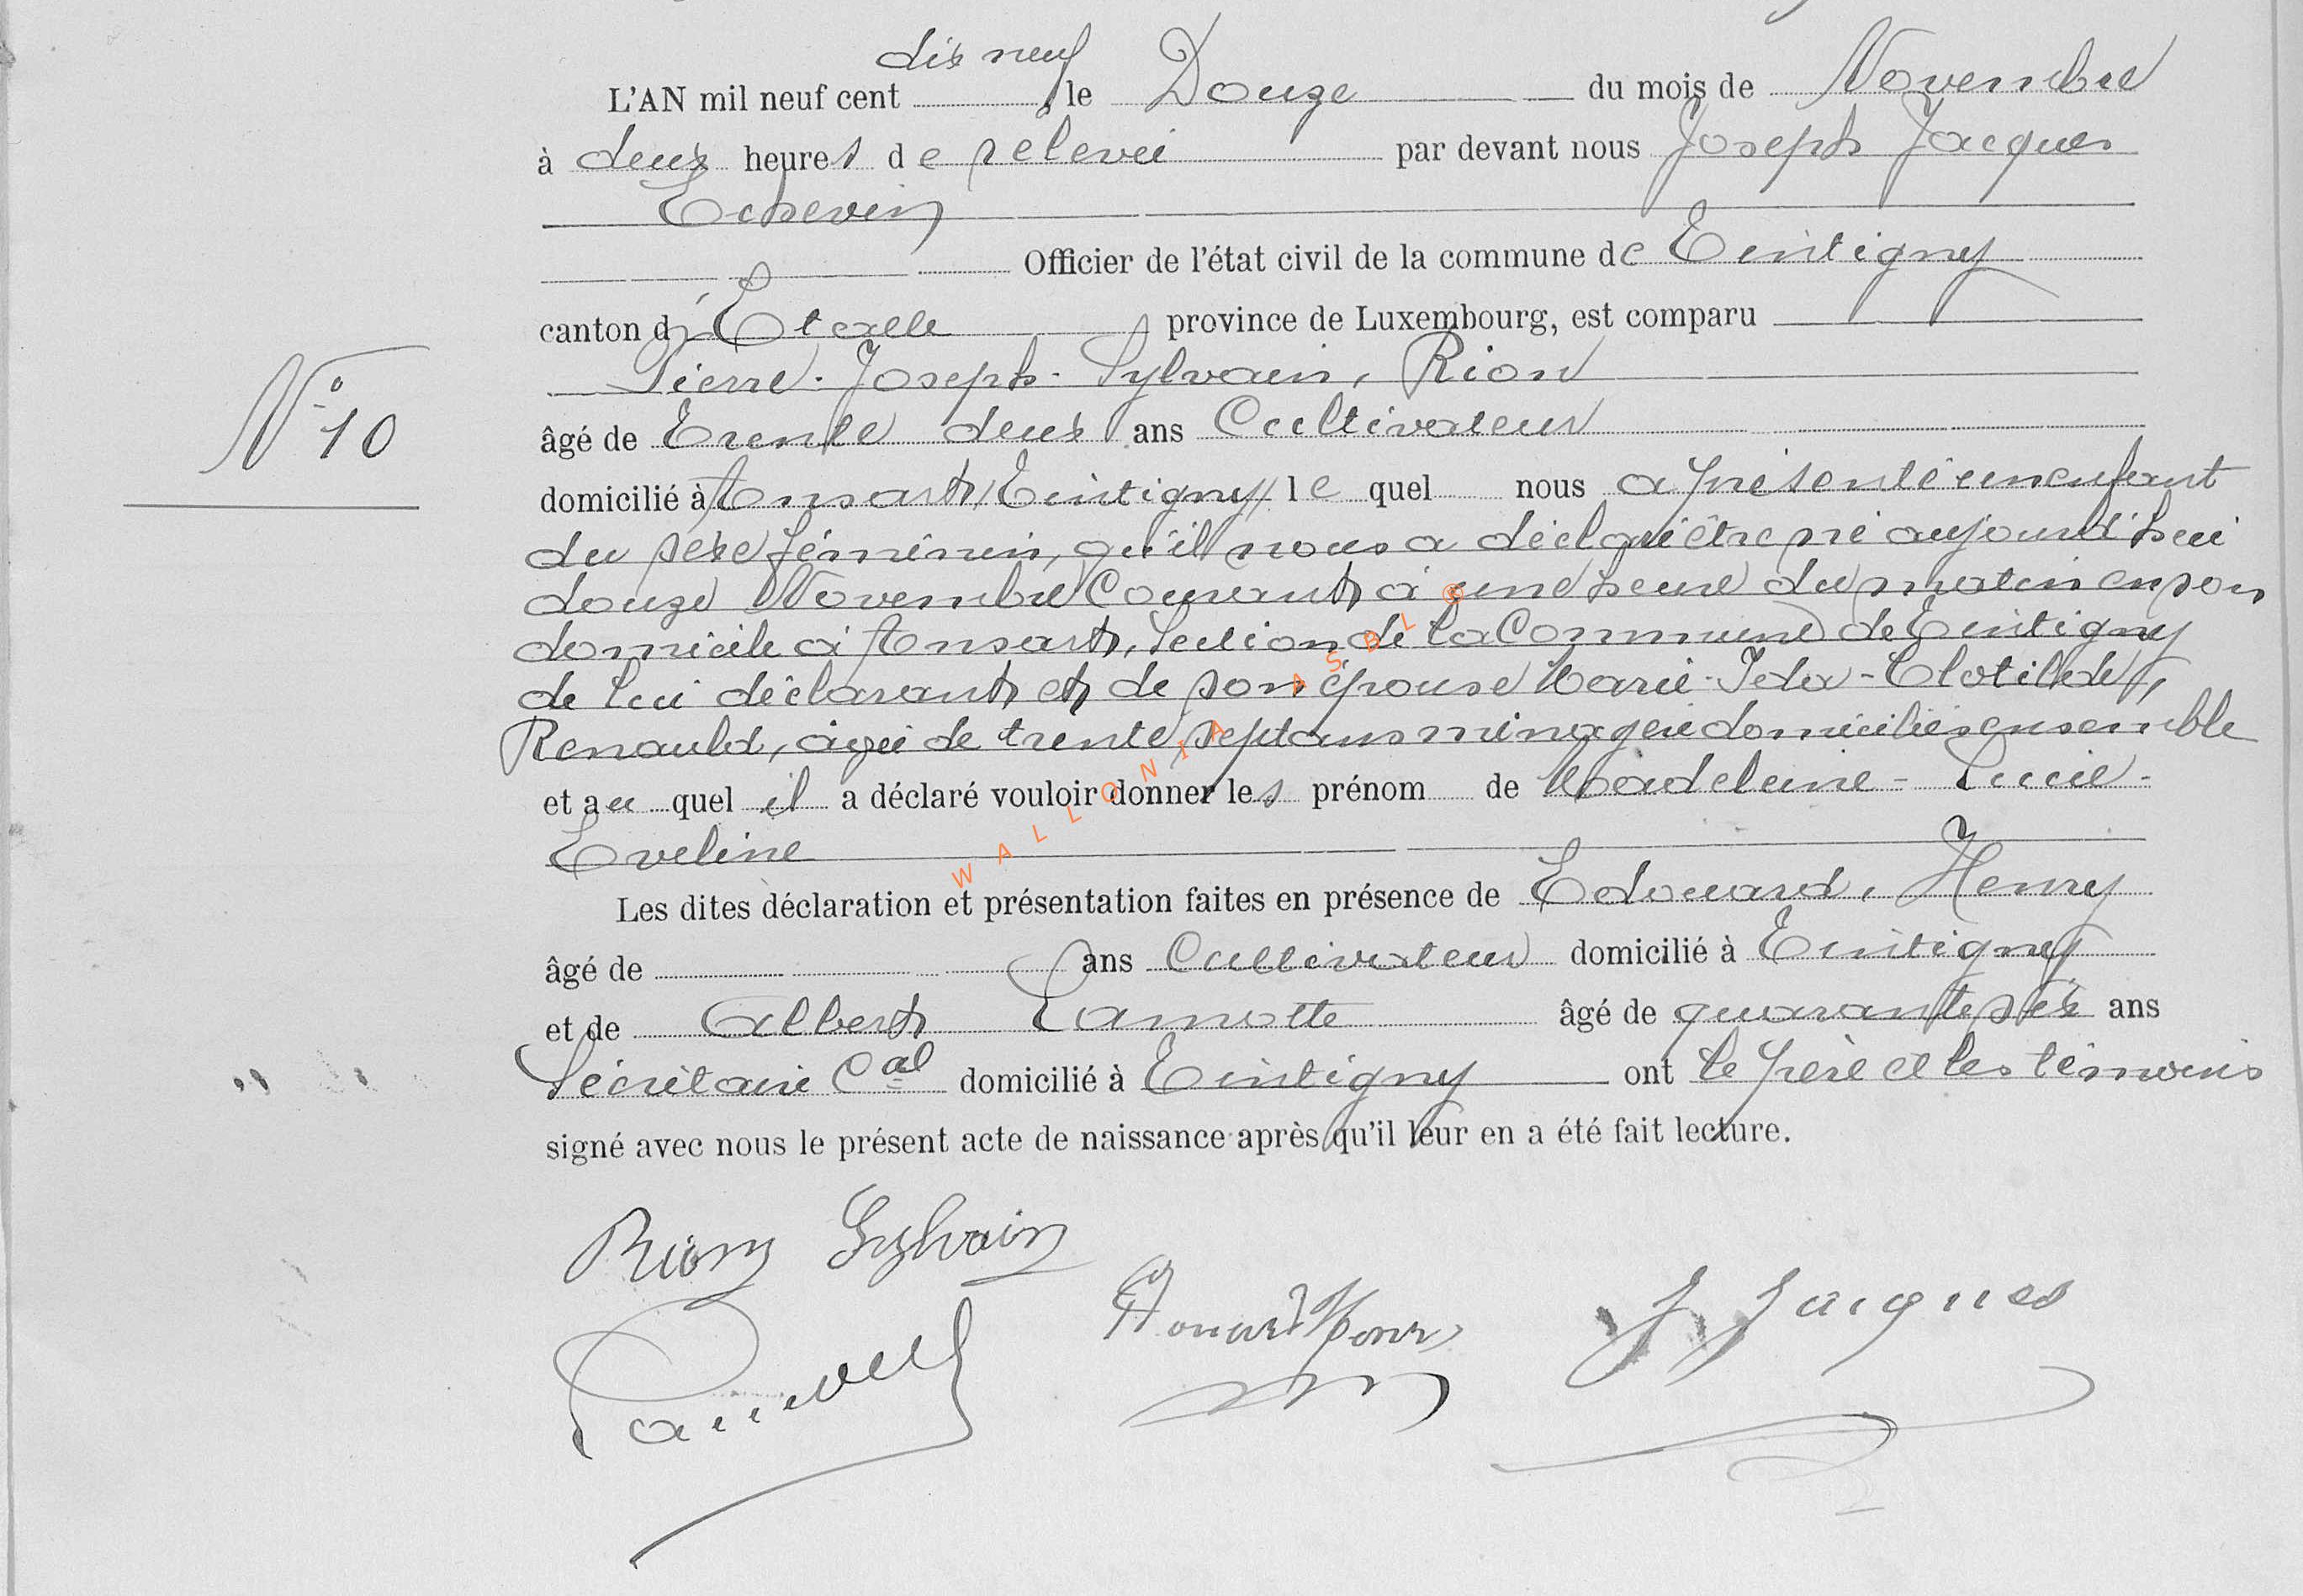 dix neuf
L'AN mil neuf cent , le Douze du mois de Novembre
à deux heures de relevée par devant nous Joseph Jacques
Echevin
Officier de l'état civil de la commune de Tintigny
canton d'Etalle province de Luxembourg, est comparu
Pierre-Joseph-Sylvain, Rion
N° 10
âgé de Trente deux ans Cultivateur
domicilié à Ansart, (Tintigny) le quel nous a présenté un enfant
du sexe féminin, qu'il nous a déclaré être né aujourd'hui
douze Novembre Courant, à une heure du matin en son
domicile à Ansart, Section de la Commune de Tintigny
de lui déclarant et de son épouse Marie-Ida-Clotilde,
Renauld, âgée de trente sept ans ménagère domiciliés ensemble
et au quel il a déclaré vouloir donner les prénom de Madeleine-Lucie-
Eveline
Les dites déclaration et présentation faites en présence de Edouard, Henry
âgé de ans Cultivateur domicilié à Tintigny
et de Albert Lamotte âgé de quarante six ans
Sécrétaire Cal domicilié à Tintigny ont le père et les témoins
signé avec nous le présent acte de naissance après qu'il leur en a été fait lecture.
Rion Sylvain
J Jacques
WALLONIA ASBL ©